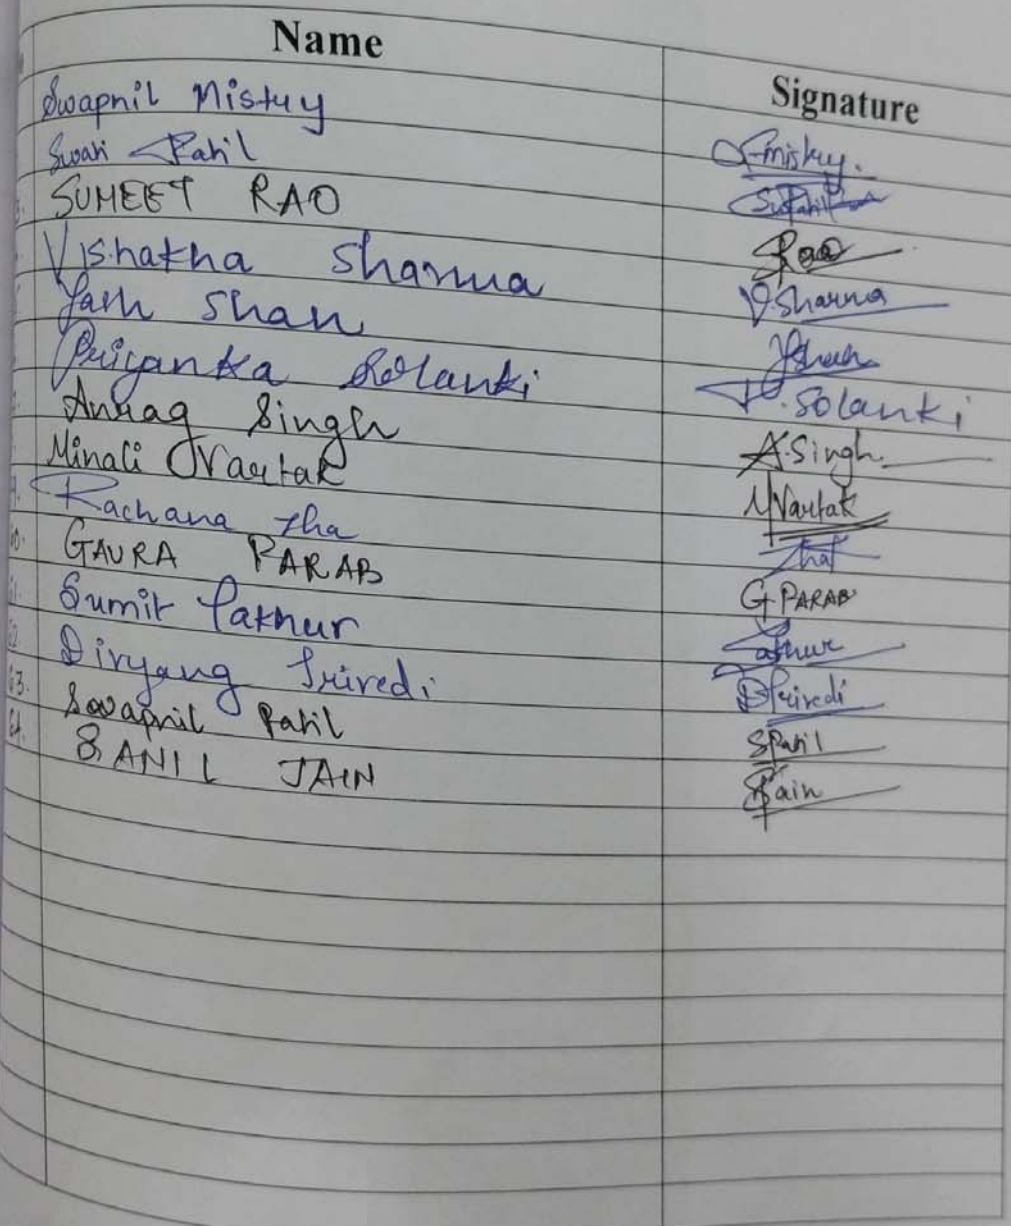 Name Signature
Swapnil Mistry S.mistry.
Swati Patil S.Patil
3. SUMEET RAO Rao
Vishakha Sharma V.Sharma
Yash Shah YShah
Priyanka Solanki P.Solanki
Anurag Singh A.Singh
Minali Vartak MVartak
Rachana Jha Jha
60. GAURA PARAB G PARAB
61. Sumit Takhur Takhur
62 Divyang Trivedi DTrivedi
63. Swapnil Patil SPatil
64. SANIL JAIN SJain